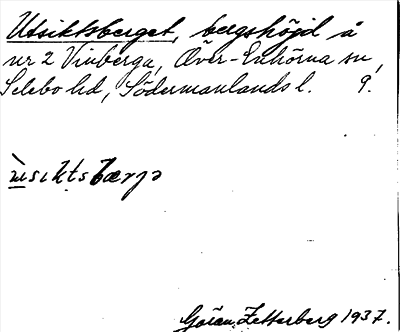 Utsiktsberget, bergshöjd å
nr 2 Vinberga, Över-Enhörna sn,
Selebo hd, Södermanlands l. 9.
Göran Zetterberg 1937.